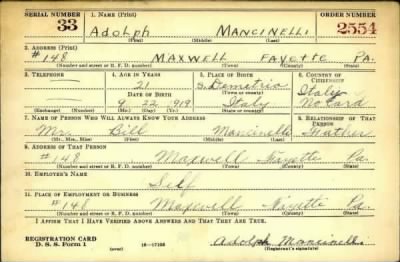 SERIAL NUMBER 1. NAME (Print) ORDER NUMBER
33 Adolph Mancinelli 2554
(First) (Middle) (Last)
2. ADDRESS (Print)
#148 Maxwell Fayette Pa.
(Number and street or R. F. D. number) (Town) (County) (State)
3. TELEPHONE 4. AGE IN YEARS 5. PLACE OF BIRTH 6. COUNTRY OF CITIZENSHIP
21 S. Demetrio Italy
DATE OF BIRTH (Town or county)
9 22 1919 Italy No Card
(Exchange) (Number) (Mo.) (Day) (Yr.) (State or country)
7. NAME OF PERSON WHO WILL ALWAYS KNOW YOUR ADDRESS 8. RELATIONSHIP OF THAT PERSON
Mr. Bill Mancinelli Father
(Mr., Mrs., Miss) (First) (Middle) (Last)
9. ADDRESS OF THAT PERSON
#148 Maxwell Fayette Pa.
(Number and street or R. F. D. number) (Town) (County) (State)
10. EMPLOYER'S NAME
Self
11. PLACE OF EMPLOYMENT OR BUSINESS
#148 Maxwell Fayette Pa.
(Number and street or R. F. D. number) (Town) (County) (State)
I AFFIRM THAT I HAVE VERIFIED ABOVE ANSWERS AND THAT THEY ARE TRUE.
REGISTRATION CARD
D. S. S. Form 1 16—17105 Adolph Mancinelli
(Registrant's signature)